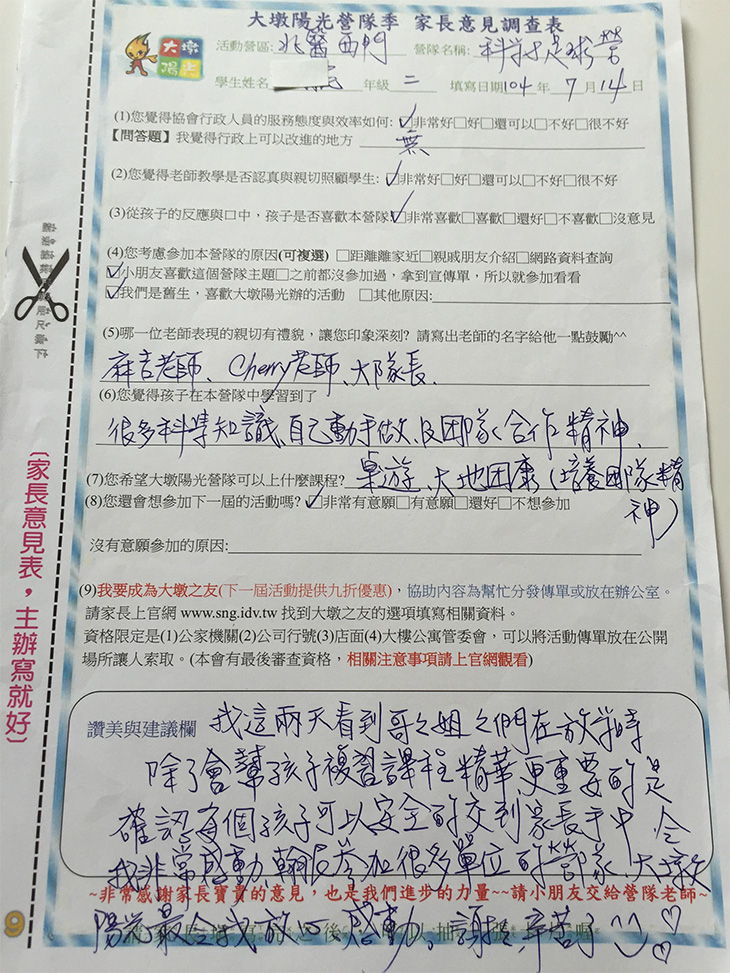 大墩陽光營隊季 家長意見調查表
大墩
陽光
活動營區: 北醫西門 營隊名稱: 科學足球營
學生姓名 年級 二 填寫日期104年 7月14日
(1)您覺得協會行政人員的服務態度與效率如何: ☑非常好□好□還可以□不好□很不好
【問答題】我覺得行政上可以改進的地方 無
(2)您覺得老師教學是否認真與親切照顧學生: ☑非常好□好□還可以□不好□很不好
(3)從孩子的反應與口中，孩子是否喜歡本營隊☑非常喜歡□喜歡□還好□不喜歡□沒意見
(4)您考慮參加本營隊的原因(可複選) □距離離家近□親戚朋友介紹□網路資料查詢
☑小朋友喜歡這個營隊主題□之前都沒參加過，拿到宣傳單，所以就參加看看
☑我們是舊生，喜歡大墩陽光辦的活動 □其他原因:
(5)哪一位老師表現的親切有禮貌，讓您印象深刻? 請寫出老師的名字給他一點鼓勵^^
麻吉老師、Cherry老師、大隊長.
(6)您覺得孩子在本營隊中學習到了
很多科學知識、自己動手做、及團隊合作精神.
(7)您希望大墩陽光營隊可以上什麼課程? 桌遊、大地團康(培養團隊精
神)
(8)您還會想參加下一屆的活動嗎? ☑非常有意願□有意願□還好□不想參加
沒有意願參加的原因:
(9)我要成為大墩之友(下一屆活動提供九折優惠)，協助內容為幫忙分發傳單或放在辦公室。
請家長上官網 www.sng.idv.tw 找到大墩之友的選項填寫相關資料。
資格限定是(1)公家機關(2)公司行號(3)店面(4)大樓公寓管委會，可以將活動傳單放在公開
場所讓人索取。(本會有最後審查資格，相關注意事項請上官網觀看)
讚美與建議欄 我這兩天看到哥哥姐姐們在放學時
除了會幫孩子複習課程精華,更重要的是
確認每個孩子可以安全的交到家長手中,令
我非常感動,翰辰參加很多單位的營隊,大墩
~非常感謝家長寶貴的意見，也是我們進步的力量~~請小朋友交給營隊老師~
陽光最令我放心、感動。謝謝,辛苦了
[家長意見表，主辦寫就好]
9